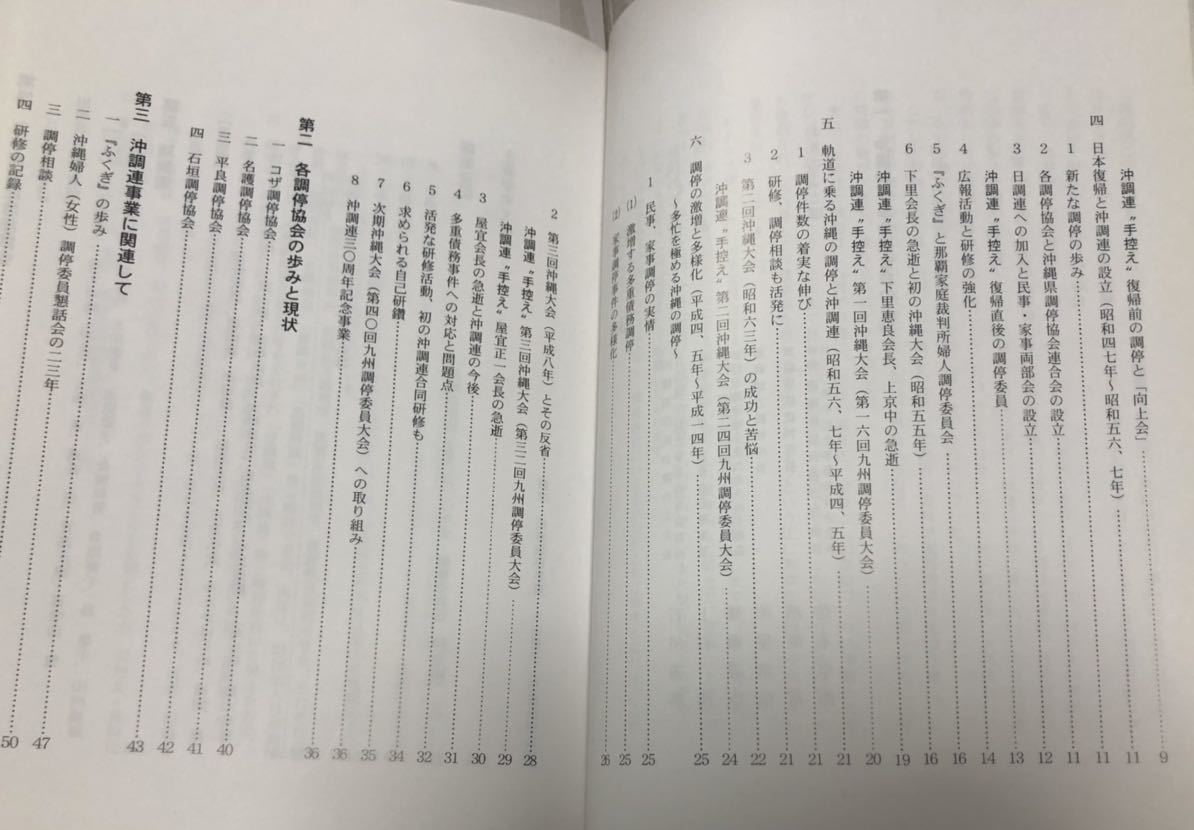 沖調連“手控え”復帰前の調停と「向上会」……9
四 日本復帰と沖調連の設立（昭和四七年～昭和五六、七年）……11
1 新たな調停の歩み……11
2 各調停協会と沖縄県調停協会連合会の設立……11
3 日調連への加入と民事・家事両部会の設立……12
沖調連“手控え”復帰直後の調停委員……13
4 広報活動と研修の強化……14
5 『ふくぎ』と那覇家庭裁判所婦人調停委員会……16
6 下里会長の急逝と初の沖縄大会（昭和五五年）……16
沖調連“手控え”下里恵良会長、上京中の急逝……19
沖調連“手控え”第一回沖縄大会（第一六回九州調停委員大会）……20
五 軌道に乗る沖縄の調停と沖調連（昭和五六、七年～平成四、五年）……21
1 調停件数の着実な伸び……21
2 研修、調停相談も活発に……21
3 第二回沖縄大会（昭和六三年）の成功と苦悩……22
沖調連“手控え”第二回沖縄大会（第二四回九州調停委員大会）……24
六 調停の激増と多様化（平成四、五年～平成一四年）……25
～多忙を極める沖縄の調停～
1 民事、家事調停の実情……25
(1) 激増する多重債務調停……25
(2) 家事調停事件の多様化……26
2 第三回沖縄大会（平成八年）とその反省……28
沖調連“手控え”第三回沖縄大会（第三二回九州調停委員大会）……29
沖調連“手控え”屋宜正一会長の急逝……30
3 屋宜会長の急逝と沖調連の今後……31
4 多重債務事件への対応と問題点……32
5 活発な研修活動、初の沖調連合同研修も……34
6 求められる自己研鑽……35
7 次期沖縄大会（第四〇回九州調停委員大会）への取り組み……36
8 沖調連三〇周年記念事業……36
第二 各調停協会の歩みと現状
一 コザ調停協会……40
二 名護調停協会……41
三 平良調停協会……42
四 石垣調停協会……43
第三 沖調連事業に関連して
一 『ふくぎ』の歩み……47
二 沖縄婦人（女性）調停委員懇話会の二三年……50
三 調停相談……
四 研修の記録……